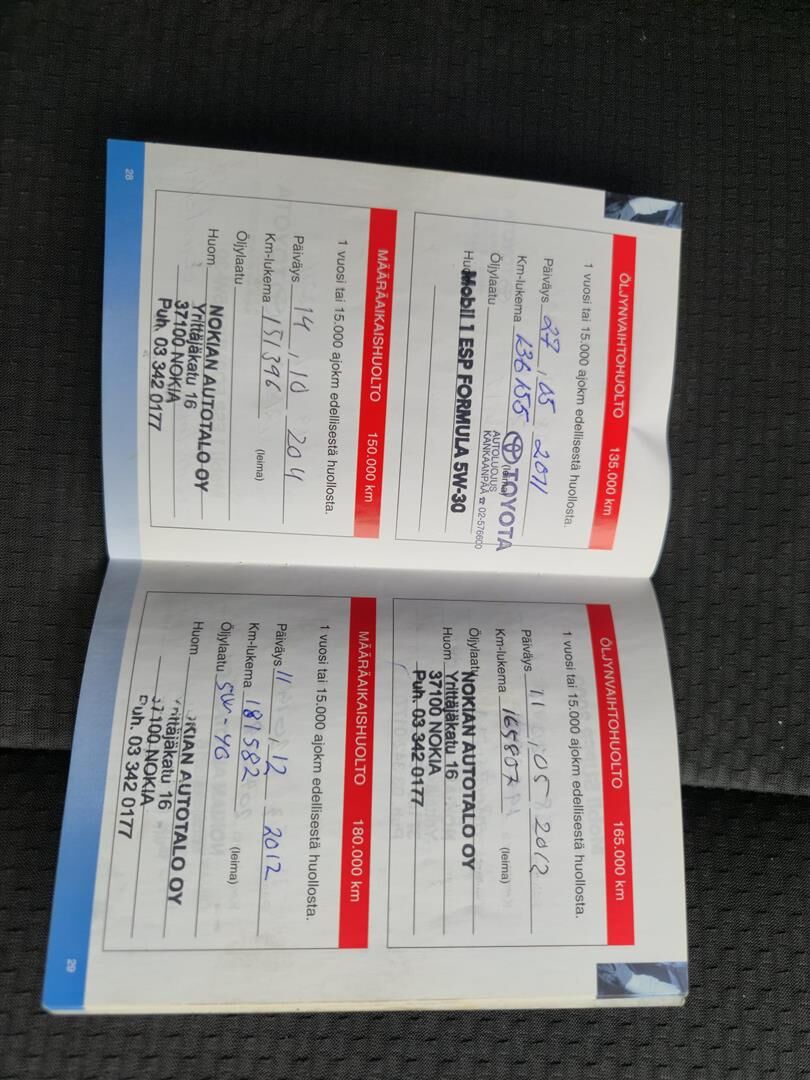 ÖLJYNVAIHTOHUOLTO 135.000 km
1 vuosi tai 15.000 ajokm edellisestä huollosta.
Päiväys 27 , 05 2011
Km-lukema 136155 (leima)
TOYOTA
AUTOLUOJUS
KANKAANPÄÄ ☎ 02-576600
Öljylaatu
Huom
Mobil 1 ESP FORMULA 5W-30
MÄÄRÄAIKAISHUOLTO 150.000 km
1 vuosi tai 15.000 ajokm edellisestä huollosta.
Päiväys 14 , 10 2011
Km-lukema 151396 (leima)
Öljylaatu
Huom
NOKIAN AUTOTALO OY
Yrittäjäkatu 16
37100 NOKIA
Puh. 03 342 0177
28
ÖLJYNVAIHTOHUOLTO 165.000 km
1 vuosi tai 15.000 ajokm edellisestä huollosta.
Päiväys 11 , 05 2012
Km-lukema 165807 (leima)
Öljylaatu
NOKIAN AUTOTALO OY
Huom
Yrittäjäkatu 16
37100 NOKIA
Puh. 03 342 0177
MÄÄRÄAIKAISHUOLTO 180.000 km
1 vuosi tai 15.000 ajokm edellisestä huollosta.
Päiväys 11 , 12 2012
Km-lukema 181582 (leima)
Öljylaatu 5W-40
Huom
NOKIAN AUTOTALO OY
Yrittäjäkatu 16
37100 NOKIA
Puh. 03 342 0177
29